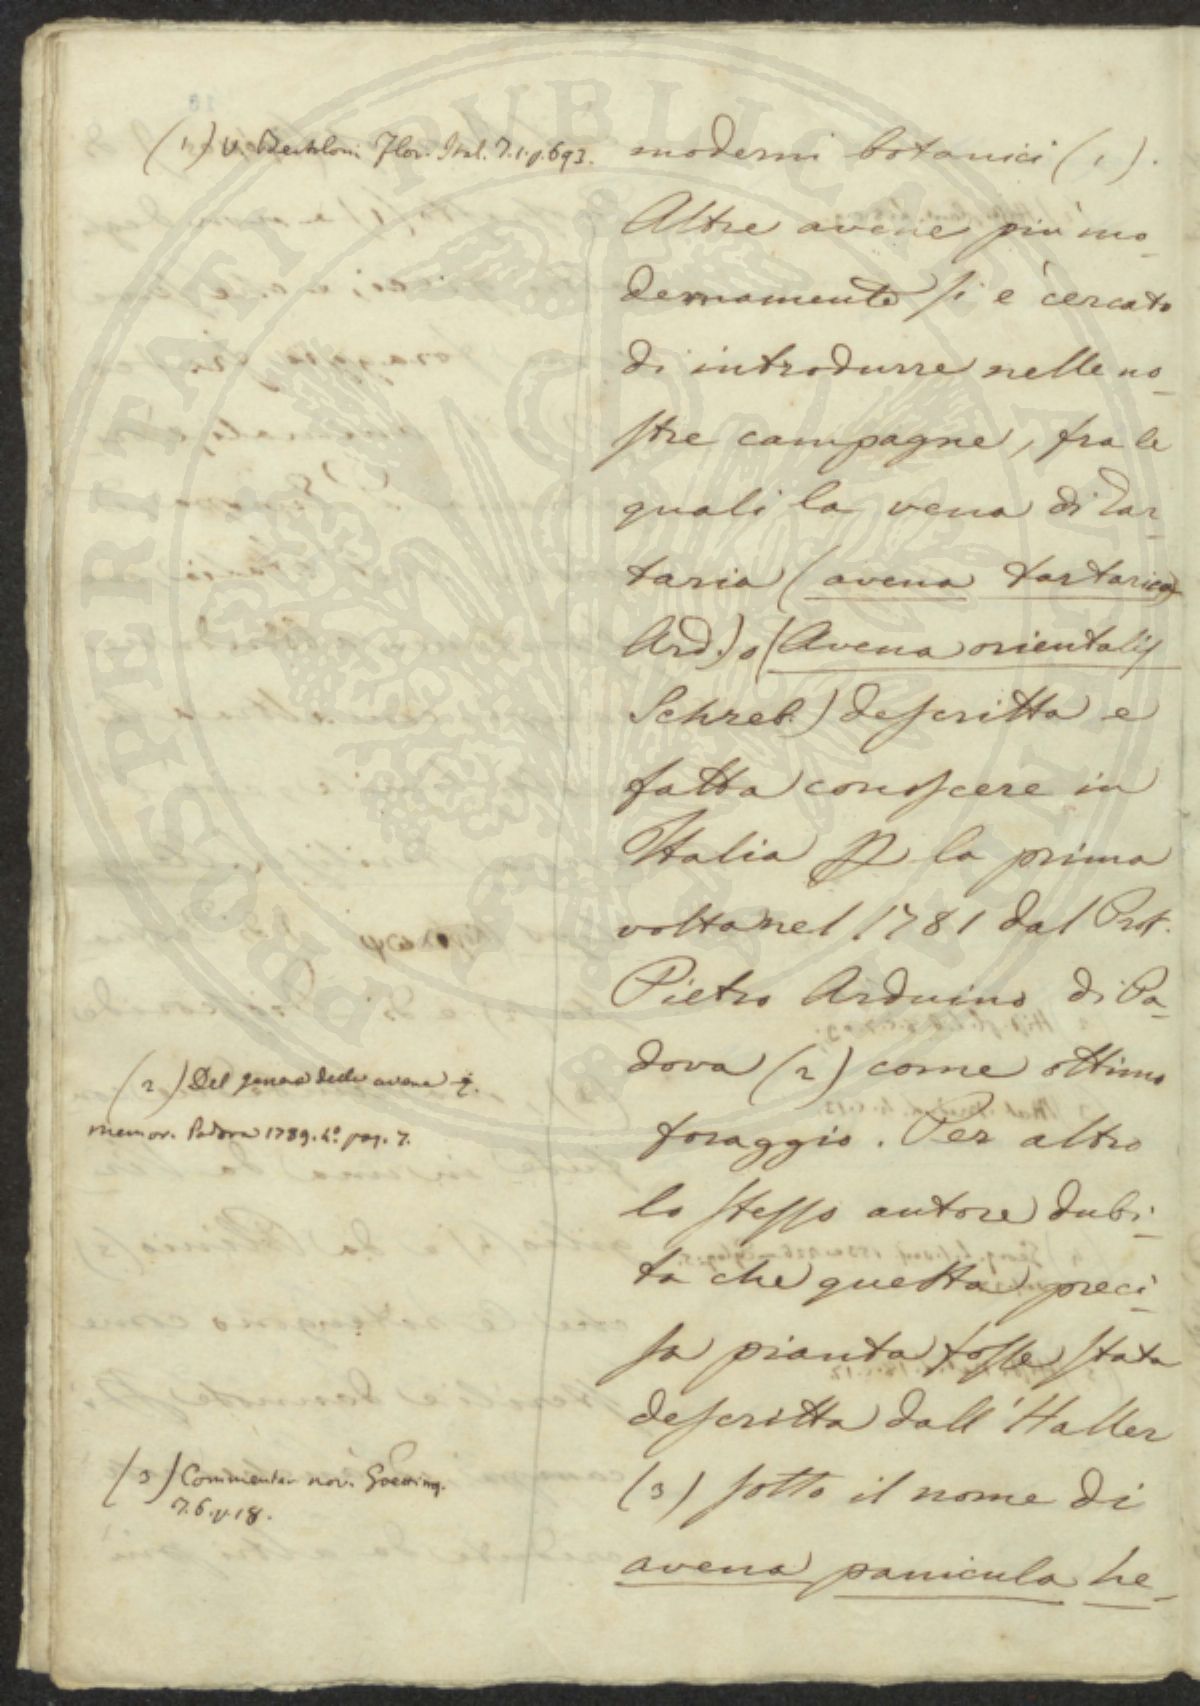 (1) V. Bertoloni Flor. Ital. T. 1. p. 693.
moderni botanici (1).
Altre avene più mo-
dernamente si è cercato
di introdurre nelle no-
stre campagne, fra le
quali la vena di Tar-
taria (avena tartarica
Ard.) o (Avena orientalis
Schreb.) descritta e
fatta conoscere in
Italia p la prima
volta nel 1781 dal Prof.
Pietro Arduino di Pa-
dova (2) come ottimo
foraggio. Per altro
lo stesso autore dubi-
ta che questa preci-
sa pianta fosse stata
descritta dall'Haller
(3) sotto il nome di
avena panicula he-
(2) Del genere delle avene
memor. Padova 1789. 4.° pag. 7.
(3) Commentar nov. Goetting.
T. 6. p. 18.
PROSPERITATI PUBLICAE